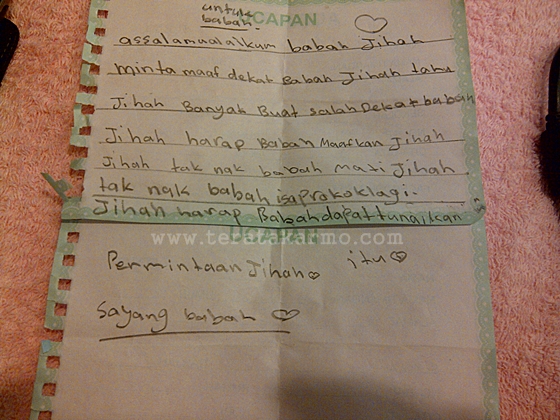 UCAPAN
untuk
babah.
assalamualaikum babah Jihah
minta maaf dekat Babah Jihah tahu
Jihah Banyak Buat salah Dekat babah
Jihah harap Babah Maafkan Jihah
Jihah tak nak babah mati Jihah
tak nak babah isap rokok lagi.
Jihah harap Babah dapat tunaikan
www.teratakarmo.com
UCAPAN
Permintaan Jihah♡ itu♡
sayang babah ♡